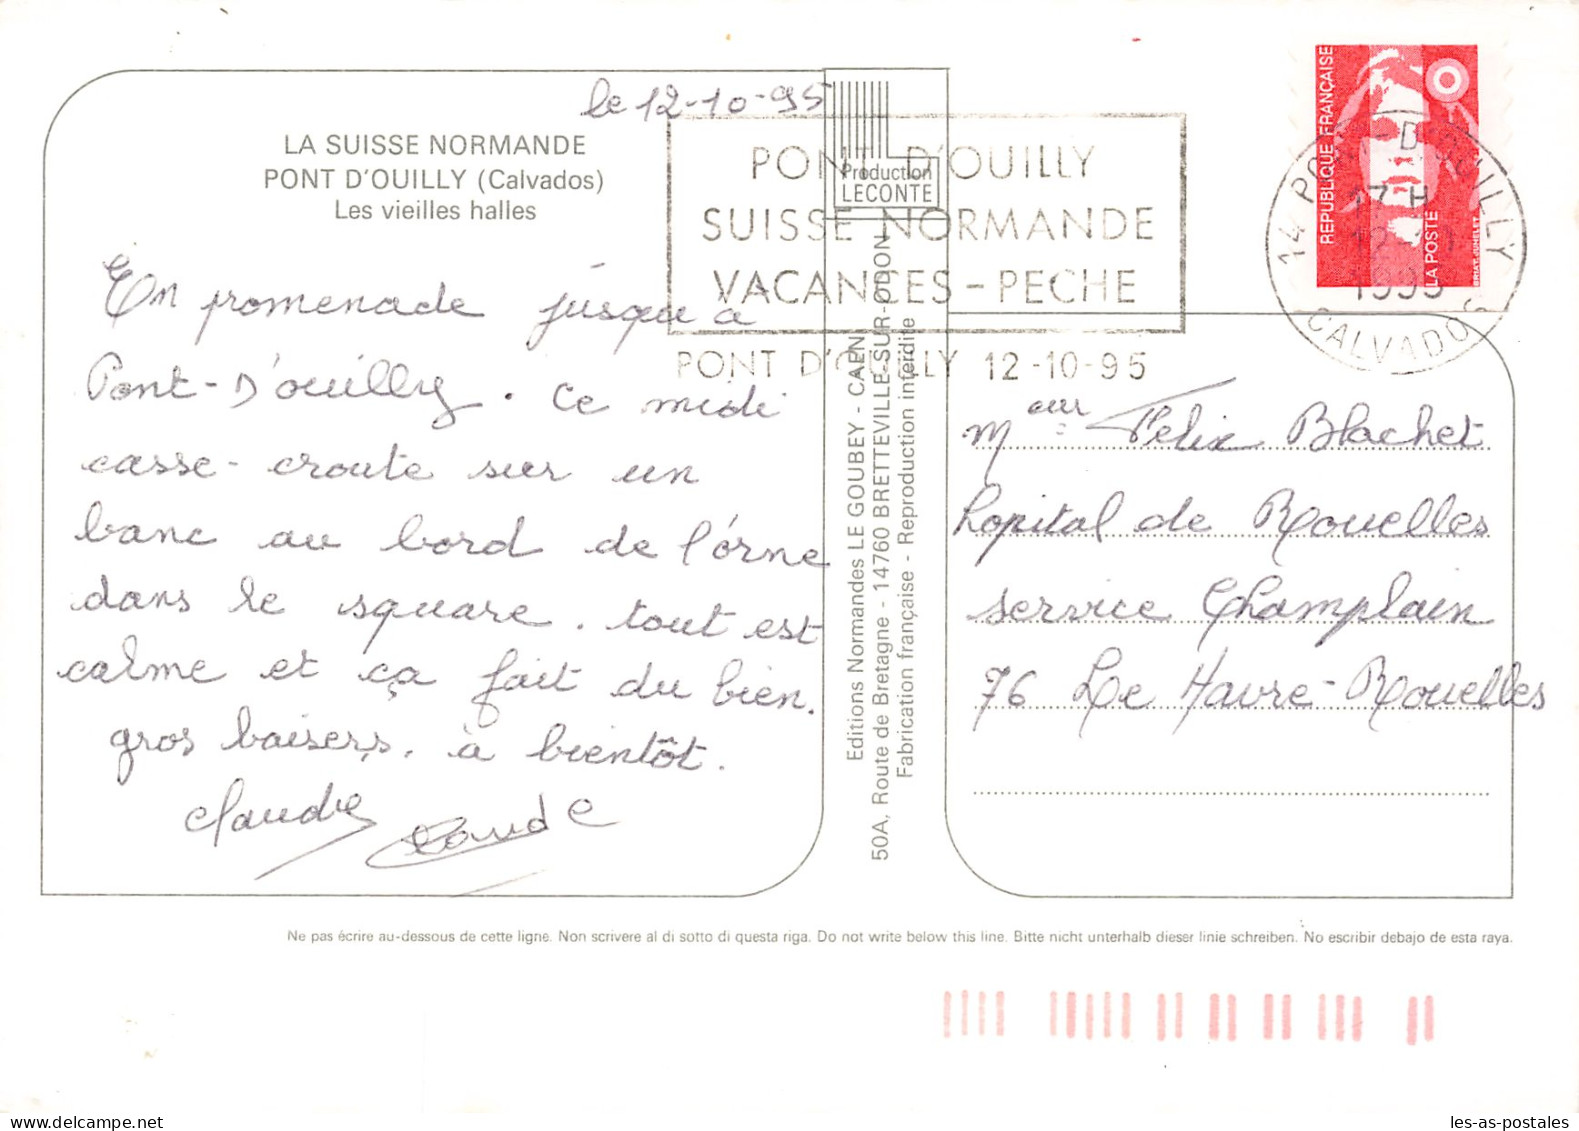 le 12-10-95
LA SUISSE NORMANDE
PONT D'OUILLY (Calvados)
Les vieilles halles
En promenade jusqu'à
Pont-D'ouilly. ce midi
casse-croute sur un
banc au bord de l'orne
dans le square. tout est
calme et ça fait du bien.
gros baisers. à bientôt.
Claude
Production
LECONTE
Editions Normandes LE GOUBEY - CAEN
50A, Route de Bretagne - 14760 BRETTEVILLE-SUR-ODON
Fabrication française - Reproduction interdite
PONT D'OUILLY
SUISSE NORMANDE
VACANCES - PECHE
PONT D'OUILLY 12-10-95
REPUBLIQUE FRANÇAISE
LA POSTE
14 PONT-D'OUILLY
17 H
12-10
1995
CALVADOS
Félix Blachet
hopital de Rouelles
service Champlain
76 Le Havre-Rouelles
Ne pas écrire au-dessous de cette ligne. Non scrivere al di sotto di questa riga. Do not write below this line. Bitte nicht unterhalb dieser linie schreiben. No escribir debajo de esta raya.
les-as-postales